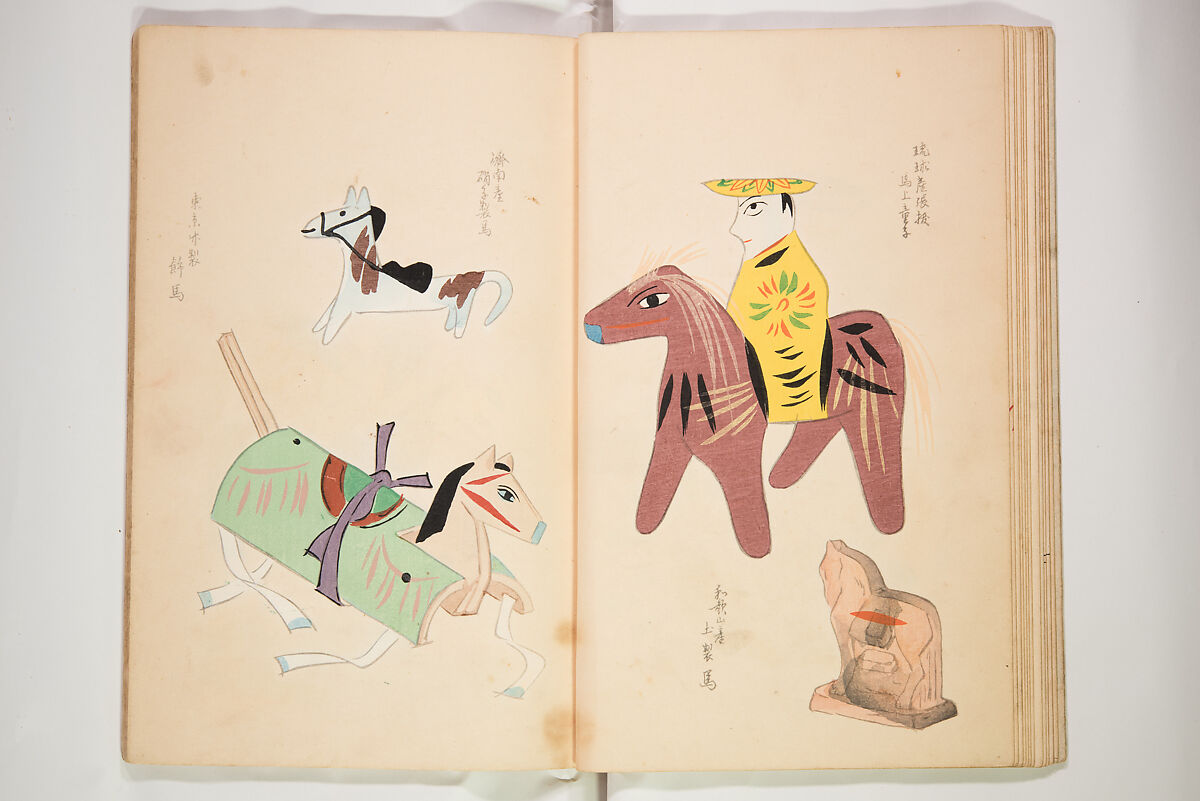 琉球産張抜
馬上童子
和歌山産
土製馬
済南産
硝子製馬
東京竹製
飾馬